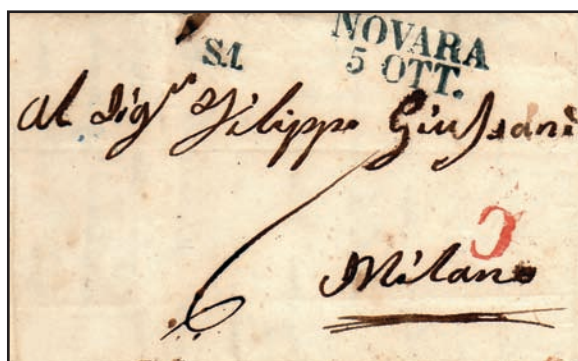 S.1.
NOVARA
5 OTT.
Al Sig.re Filippo Giussani
6
Milano